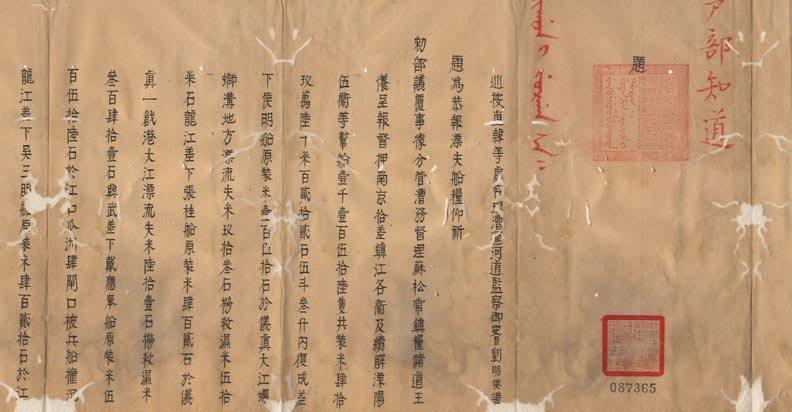 戶部知道
題
巡按直隸等處專理漕運河道監察御史臣劉明謹
題為恭報漂失船糧仰祈
勅部議覆事據分管漕務督理蘇松常鎮糧儲道王
呈報督押南京拾差鎮江各衛及續解溧陽
伍衛等幫船壹千壹百伍拾陸隻共裝米肆拾
玖萬陸千柒百貳拾貳石伍斗叁升內復成差
下使明船原裝米壹百伍拾石於儀真大江螺
螄溝地方漂流失米玖拾叁石撈救濕米伍拾
柒石龍江差下張桂船原裝米肆百貳石於儀
真一戧港大江漂流失米陸拾壹石撈救濕米
叁百肆拾壹石興武差下戴應舉船原裝米伍
百伍拾陸石於江口瓜洲肆閘口被兵船撞沉
龍江差下吳三明船原裝米肆百貳拾石於江
087365